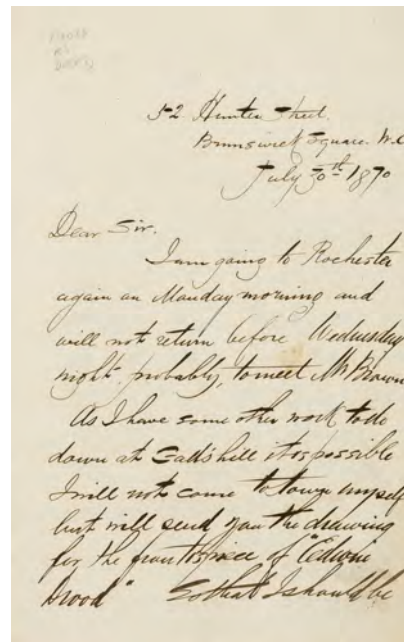 52 Hunter Street.
Brunswick Square. W.C
July 30th 1870
Dear Sir.
I am going to Rochester
again on Monday morning and
will not return before Wednesday
night probably, to meet Mr Brown
As I have some other work to do
down at Gadshill it is possible
I will not come to town myself
but will send you the drawing
for the frontispiece of "Edwin
Drood" So that I should be